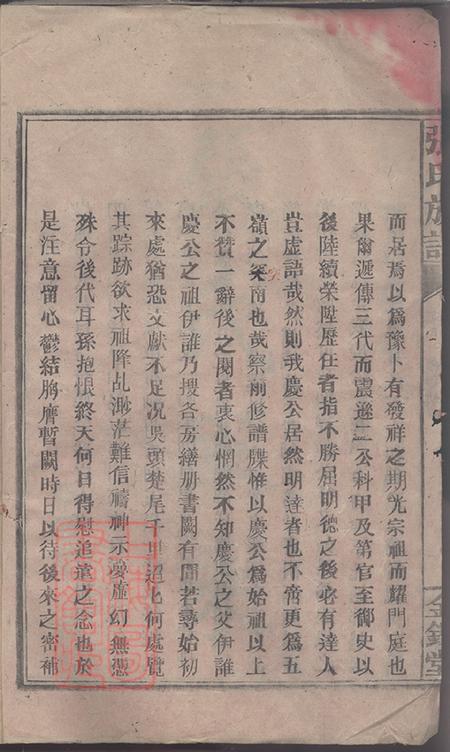 張氏族譜
金鑑堂
而居焉以爲豫卜有發祥之期光宗祖而耀門庭也
果爾遞傳三代而震遜二公科甲及第官至御史以
後陸續榮陞歷任者指不勝屈明德之後必有達人
豈虛語哉然則我慶公居然明達者也不啻更爲五
嶺之冀南也哉察前修譜牒惟以慶公爲始祖以上
不贊一辭後之閱者衷心惘然不知慶公之父伊誰
慶公之祖伊誰乃搜各房繕册書闕有間若尋始初
來處猶恐文獻不足况吳頭楚尾千里迢迢何處覽
其踪跡欲求祖降乩渺茫難信禱神示夢虛幻無憑
殊令後代耳孫抱恨終天何日得慰追遠之念也於
是注意留心鬱結胸膺暫闕時日以待後來之密補